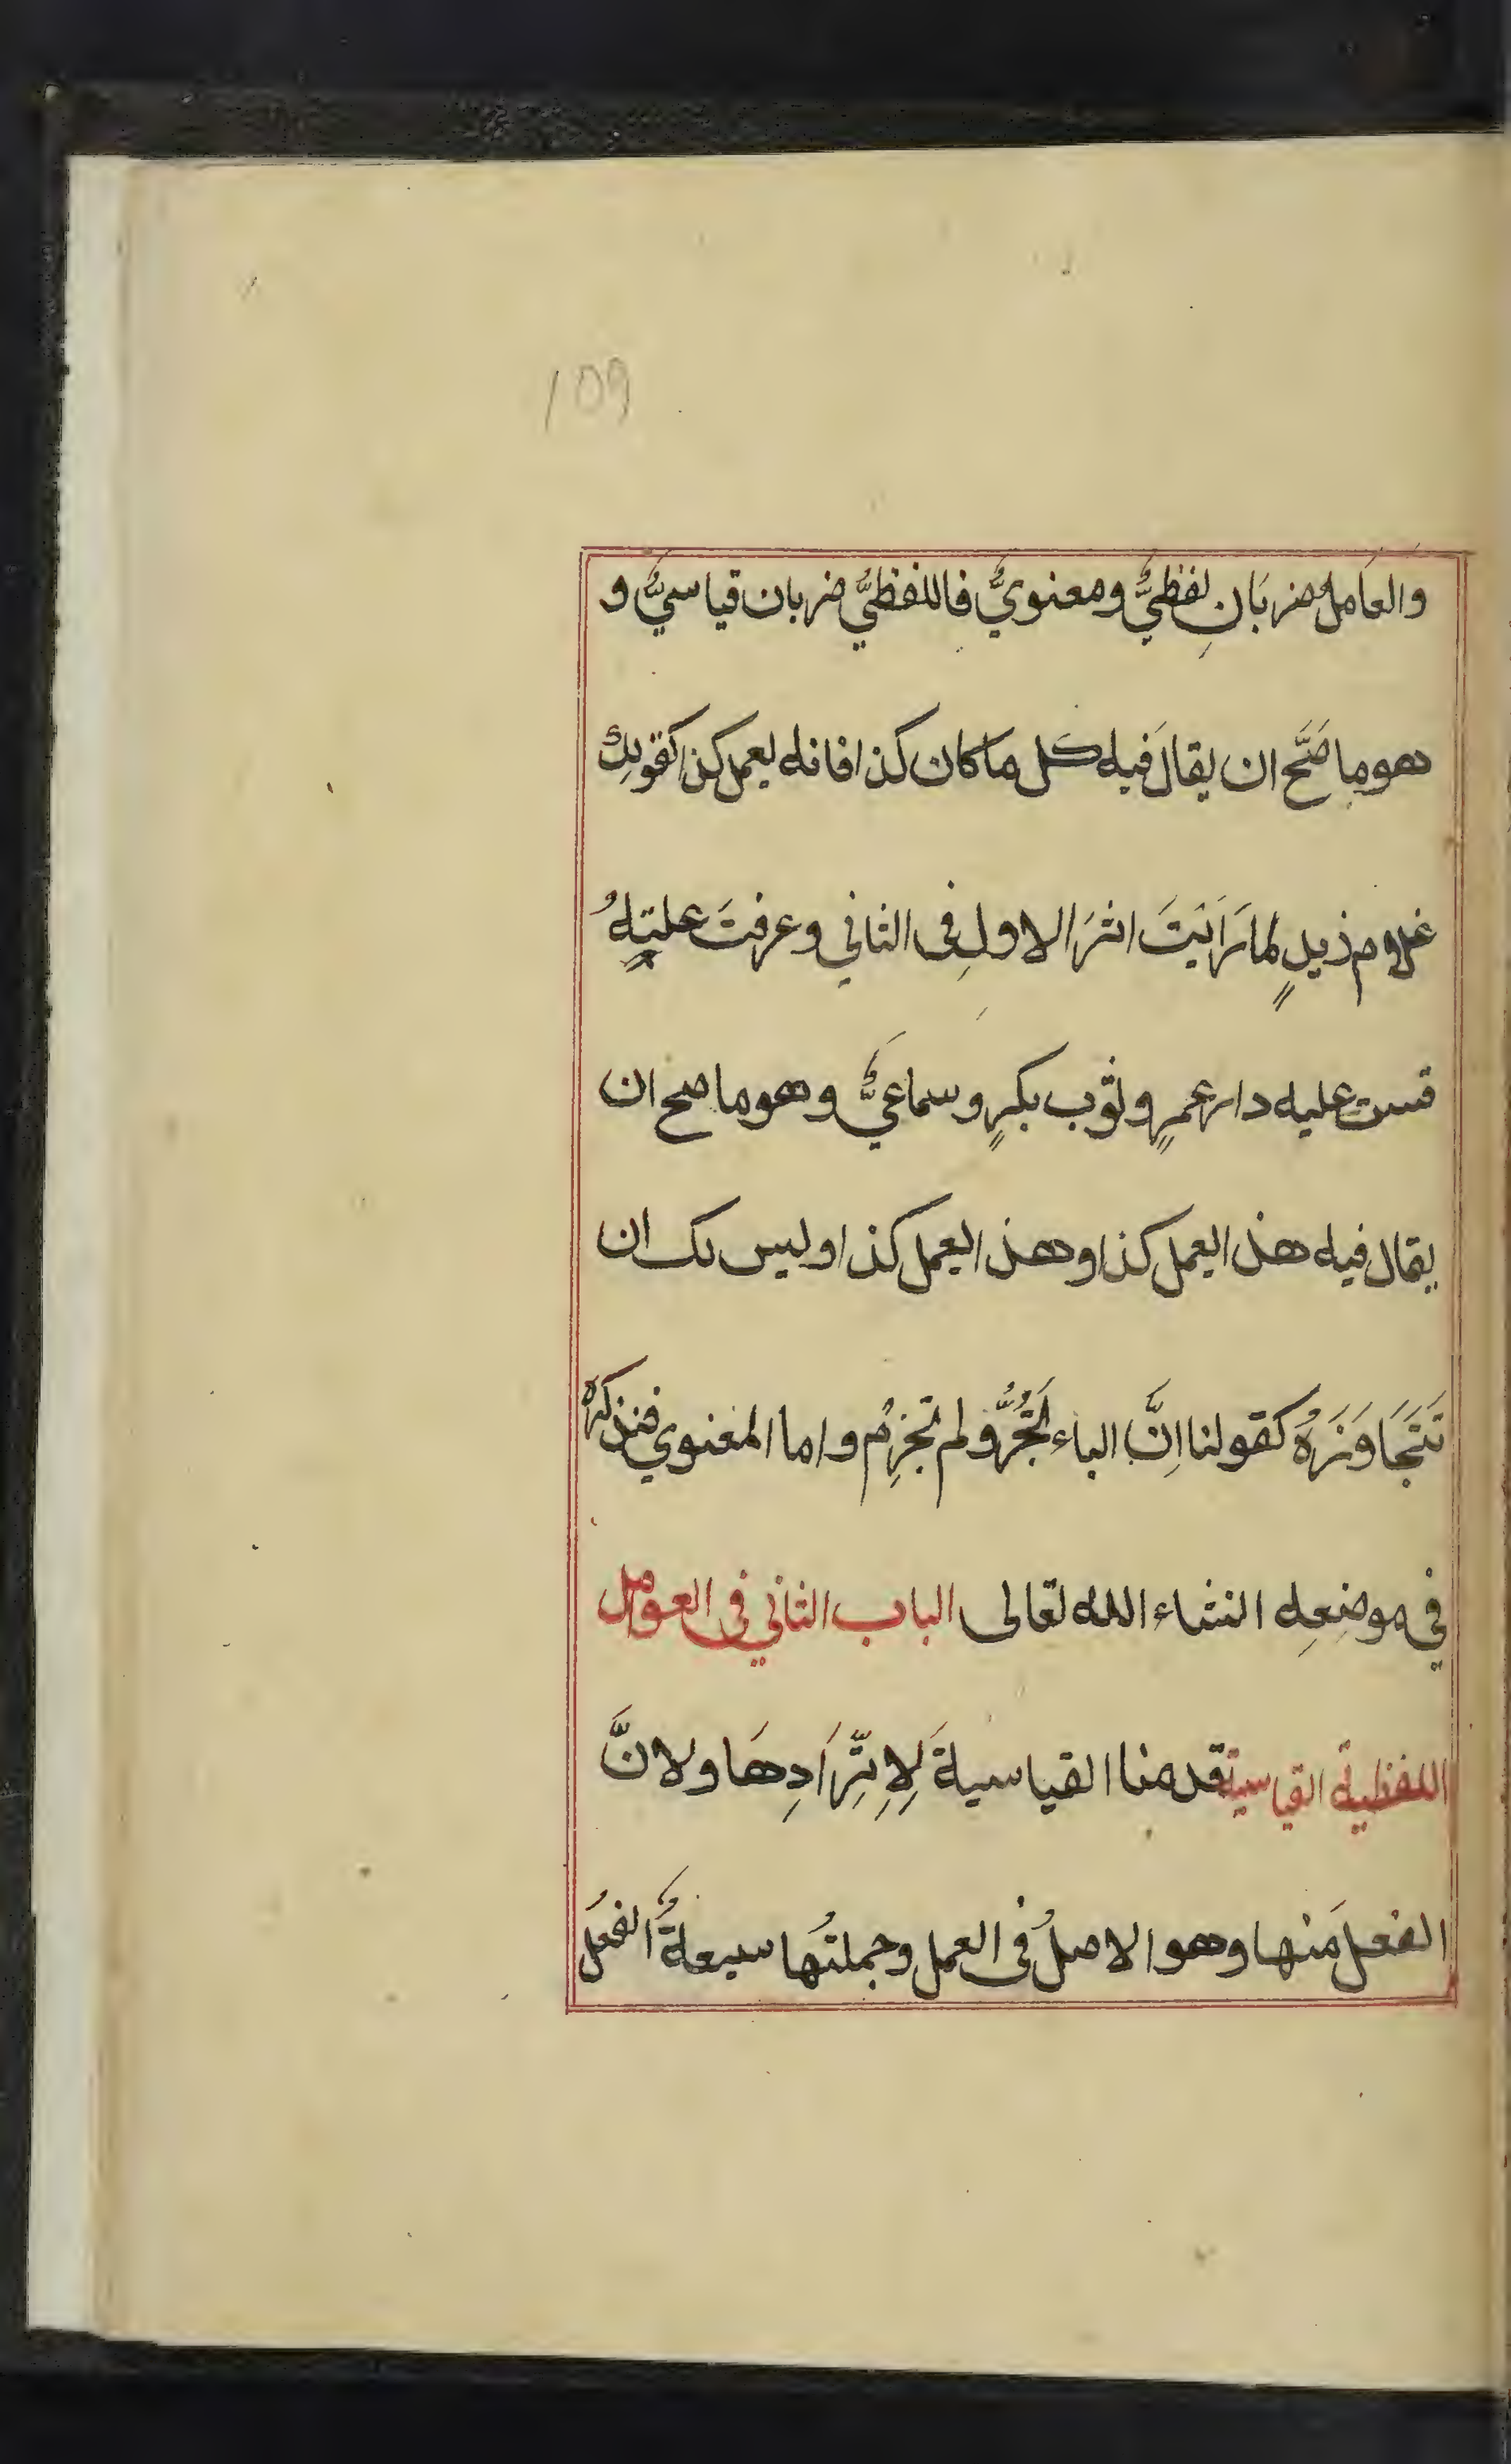 109
والعَامل ضربَانِ لفظيٌّ ومعنويٌّ فاللفظيُّ ضربان قياسيٌّ و
هو ما صَّحَ ان يقالَ فيه كل ما كان كذا فانه يعمل كذا كقولك
غلام زيدٍ لما رَايَتَ اثرَ الاولِ فى الثاني وعرفتَ عليتهُ
قست عليه دار عمرٍ وثوب بكرٍ وسماعيٌّ وهو ما صح ان
يقال فيه هذا يعمل كذا وهذا يعمل كذا وليس لك ان
تَتَجَاوَزَهُ كقولنا اِنَّ الباء تَجُرُّ ولم تجزِمُ واما المعنوي فنذكره
في موضعِه انشاء الله تعالى الباب الثاني فى العوامل
اللفظية القياسية قدمنا القياسيةَ لِاِتِّرَادِهَا ولانَّ
الفعلَ منها وهو الاصلُ فى العمل وجملتُها سبعةٌ الفعل